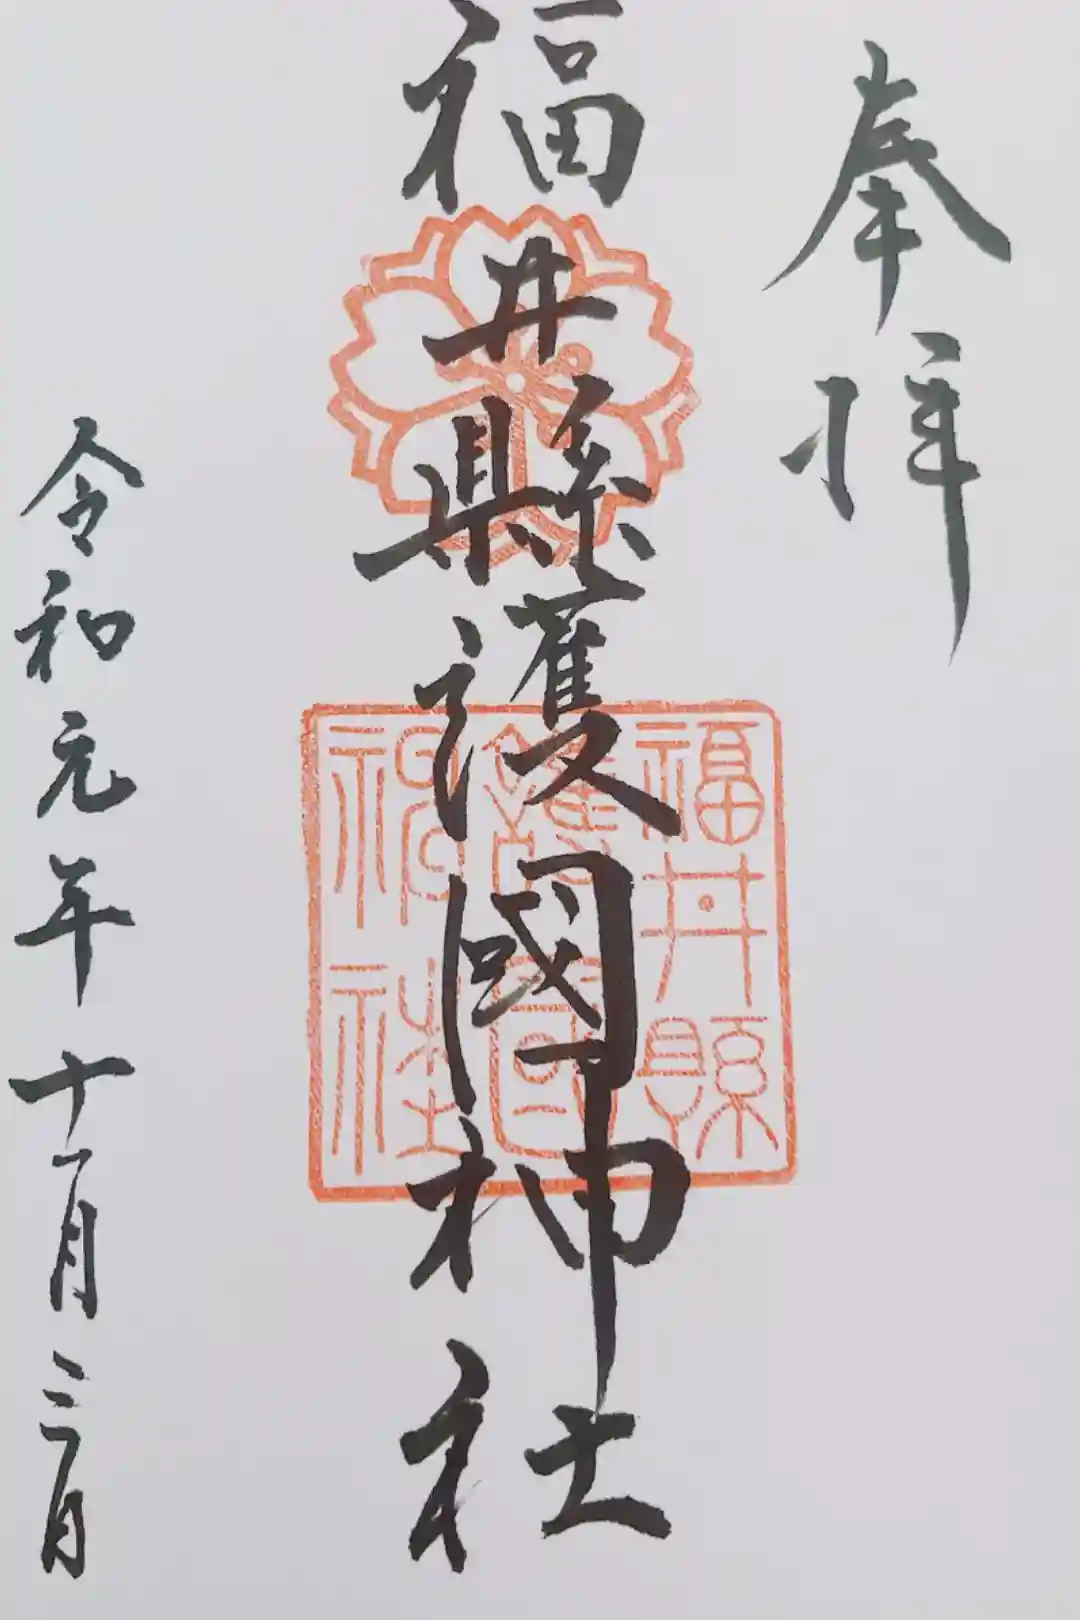 奉拝
福井縣護國神社
令和元年十一月三日
福井縣
護國
神社